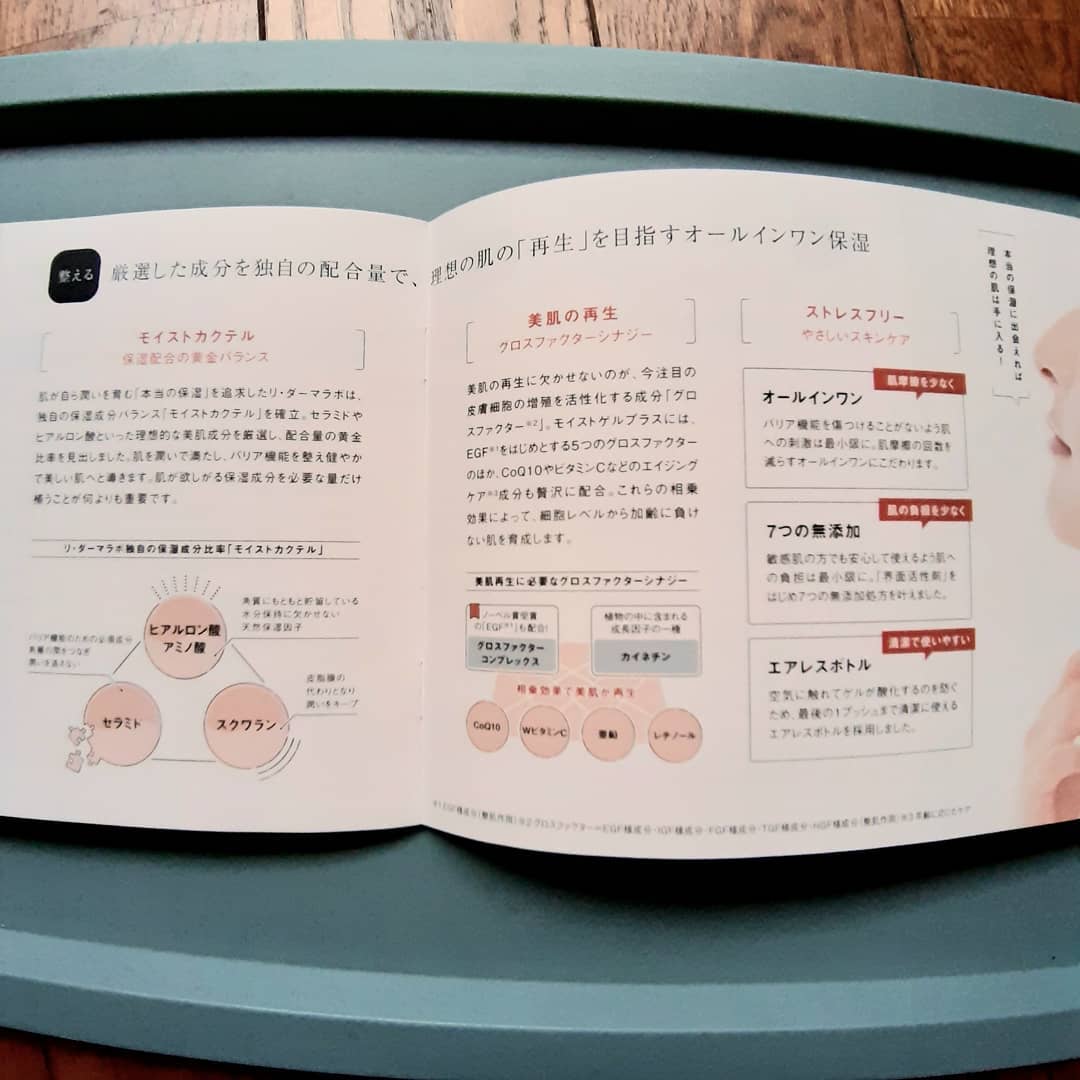 整える
厳選した成分を独自の配合量で、理想の肌の「再生」を目指すオールインワン保湿
モイストカクテル
保湿配合の黄金バランス
肌が自ら潤いを育む「本当の保湿」を追求したリ・ダーマラボは、
独自の保湿成分バランス「モイストカクテル」を確立。セラミドや
ヒアルロン酸といった理想的な美肌成分を厳選し、配合量の黄金
比率を見出しました。肌を潤いで満たし、バリア機能を整え健やか
で美しい肌へと導きます。肌が欲しがる保湿成分を必要な量だけ
補うことが何よりも重要です。
リ・ダーマラボ独自の保湿成分比率「モイストカクテル」
ヒアルロン酸
アミノ酸
角質にもともと貯留している
水分保持に欠かせない
天然保湿因子
バリア機能のための必須成分
角層の間をつなぎ
潤いを逃さない
セラミド
スクワラン
皮脂膜の
代わりとなり
潤いをキープ
美肌の再生
グロスファクターシナジー
美肌の再生に欠かせないのが、今注目の
皮膚細胞の増殖を活性化する成分「グロ
スファクター※2」。モイストゲルプラスには、
EGF※1をはじめとする5つのグロスファクター
のほか、CoQ10やビタミンCなどのエイジング
ケア※3成分も贅沢に配合。これらの相乗
効果によって、細胞レベルから加齢に負け
ない肌を育成します。
美肌再生に必要なグロスファクターシナジー
ノーベル賞受賞
の「EGF※1」も配合!
グロスファクター
コンプレックス
植物の中に含まれる
成長因子の一種
カイネチン
相乗効果で美肌が再生
CoQ10
WビタミンC
亜鉛
レチノール
ストレスフリー
やさしいスキンケア
肌摩擦を少なく
オールインワン
バリア機能を傷つけることがないよう肌
への刺激は最小限に。肌摩擦の回数を
減らすオールインワンにこだわります。
肌の負担を少なく
7つの無添加
敏感肌の方でも安心して使えるよう肌へ
の負担は最小限に。「界面活性剤」を
はじめ7つの無添加処方を叶えました。
清潔で使いやすい
エアレスボトル
空気に触れてゲルが酸化するのを防ぐ
ため、最後の1プッシュまで清潔に使える
エアレスボトルを採用しました。
本当の保湿に出会えれば
理想の肌は手に入る!
※1 EGF様成分(整肌作用) ※2 グロスファクター=EGF様成分・IGF様成分・FGF様成分・TGF様成分・HGF様成分(整肌作用) ※3 年齢に応じたケア